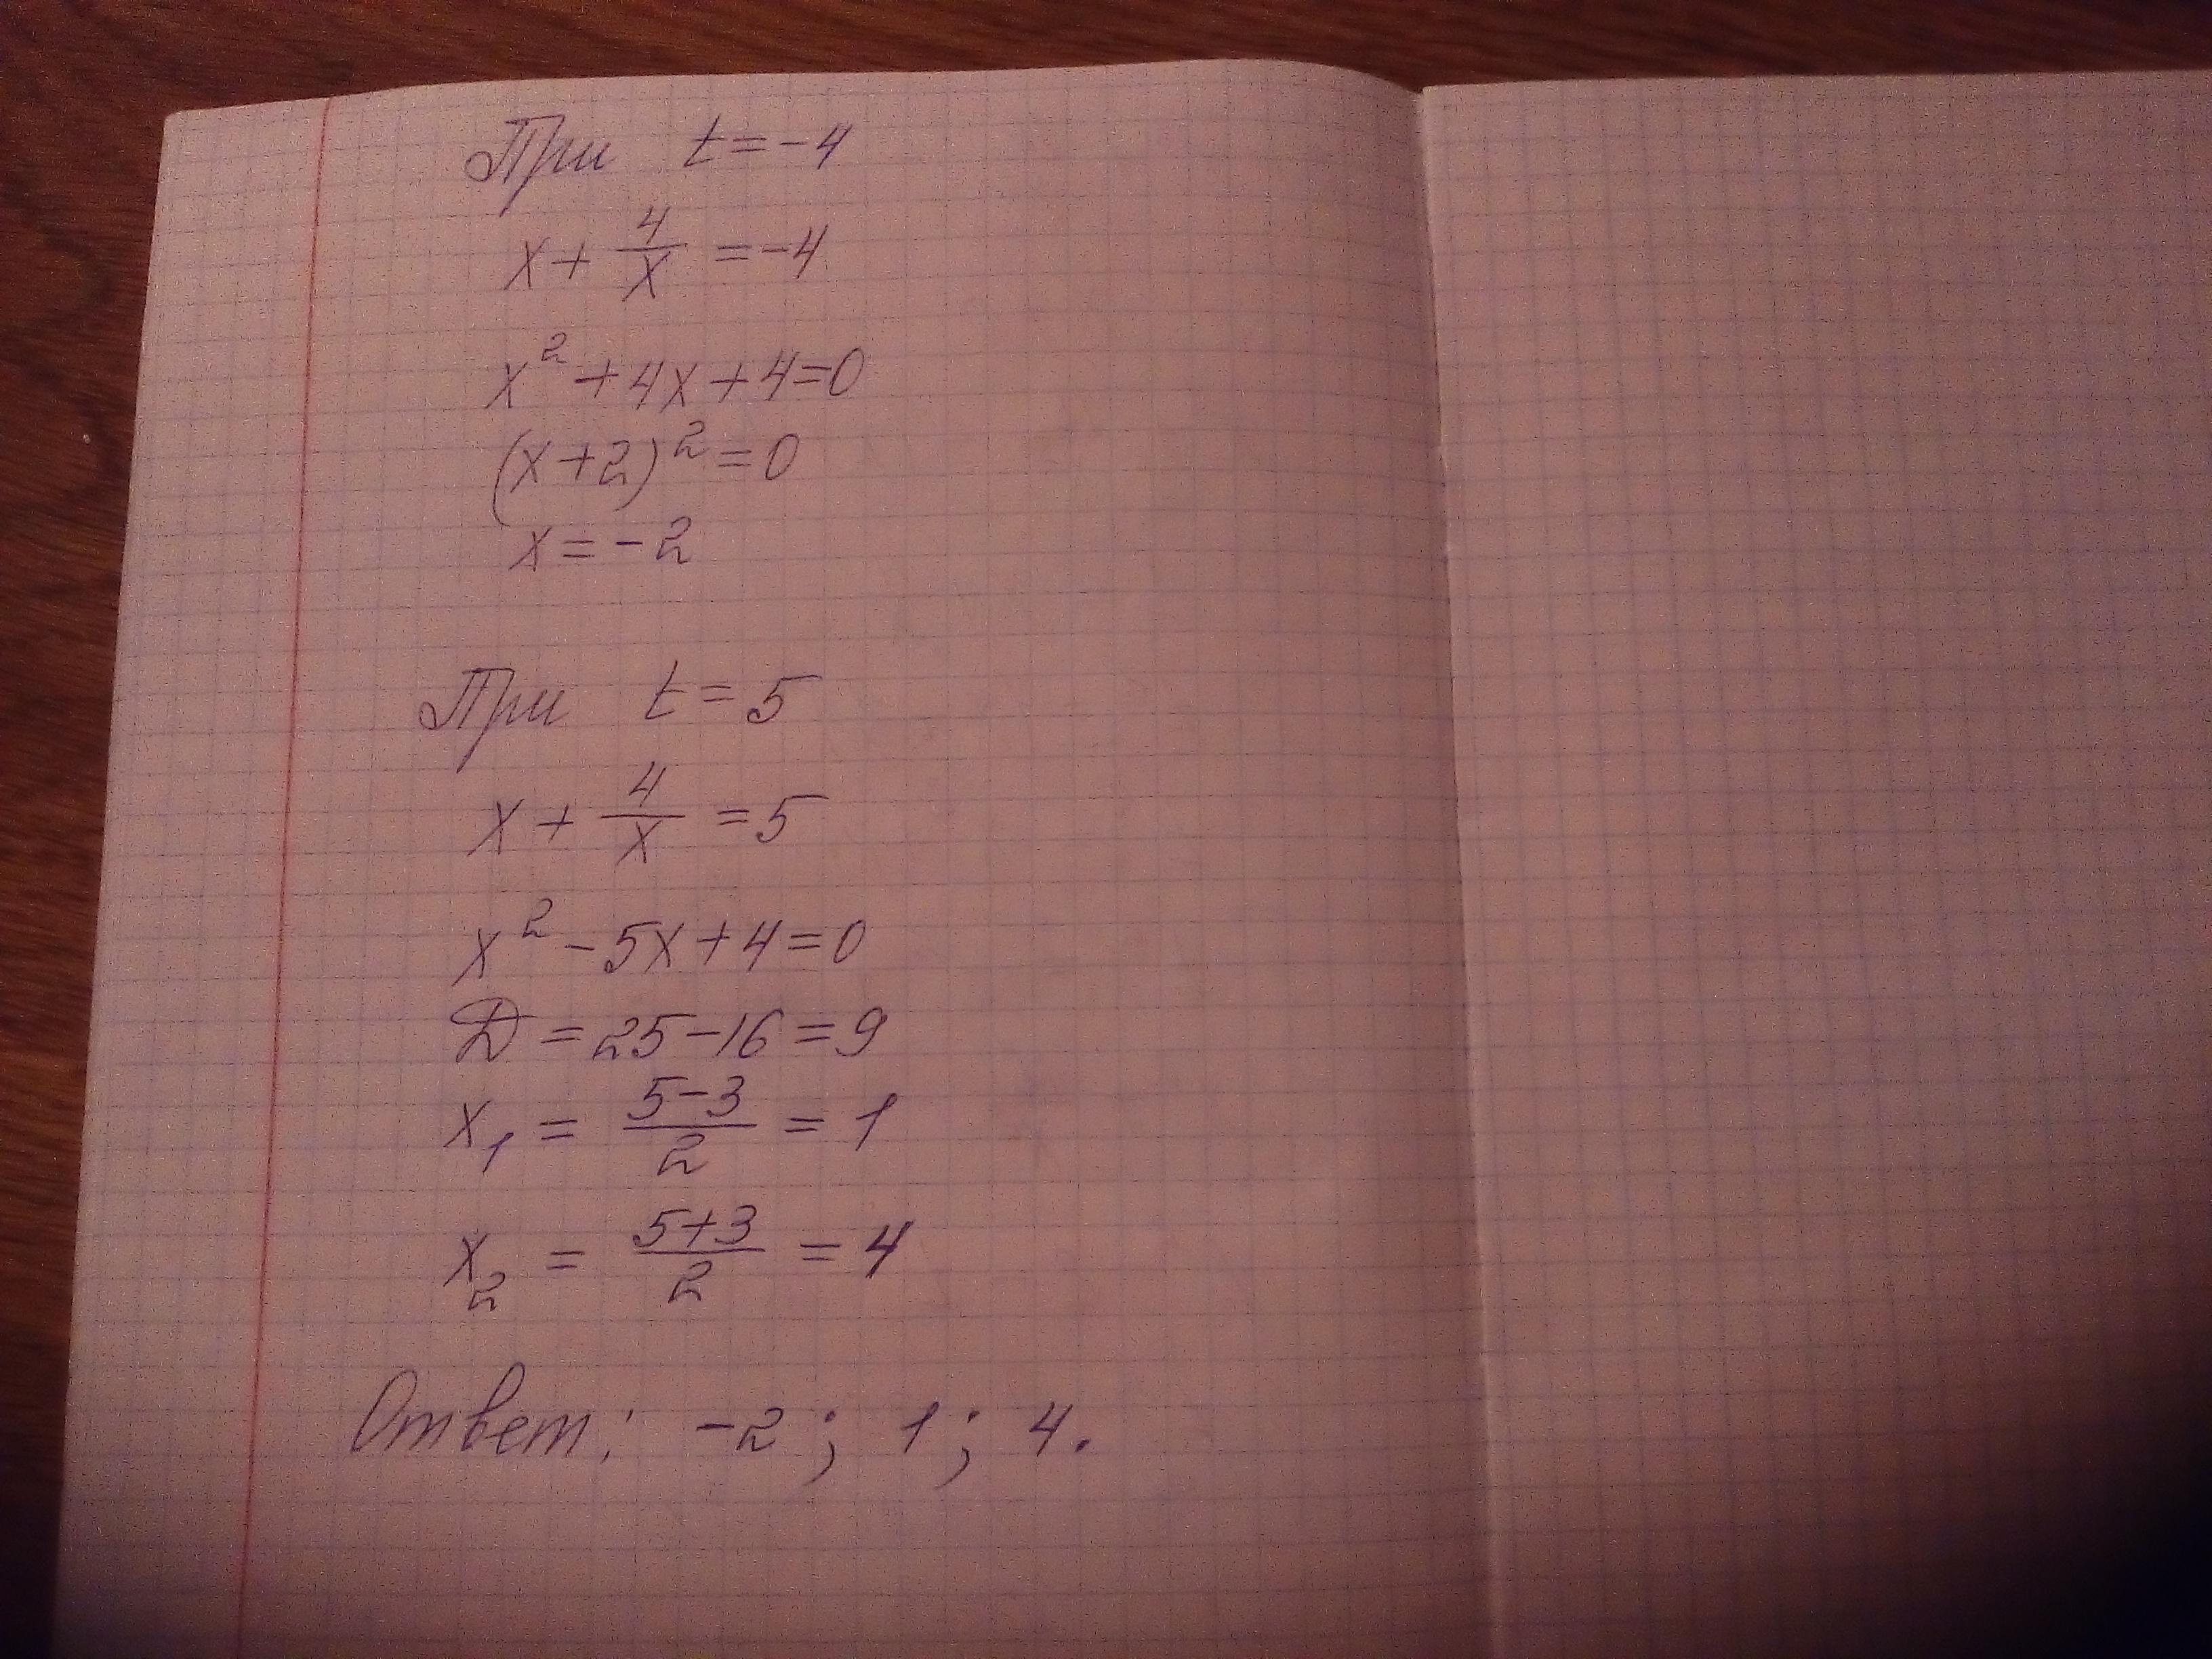 При t=-4
x+4/x=-4
x²+4x+4=0
(x+2)²=0
x=-2
При t=5
x+4/x=5
x²-5x+4=0
Д=25-16=9
x₁=(5-3)/2=1
x₂=(5+3)/2=4
Ответ: -2; 1; 4.